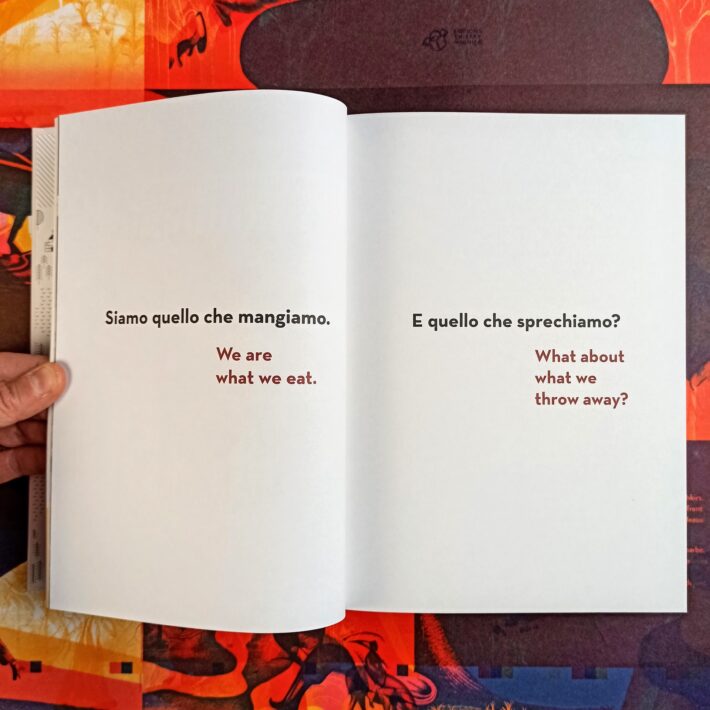 EDITIONS
THIERRY
MAGNIER
Siamo quello che mangiamo.
We are
what we eat.
E quello che sprechiamo?
What about
what we
throw away?